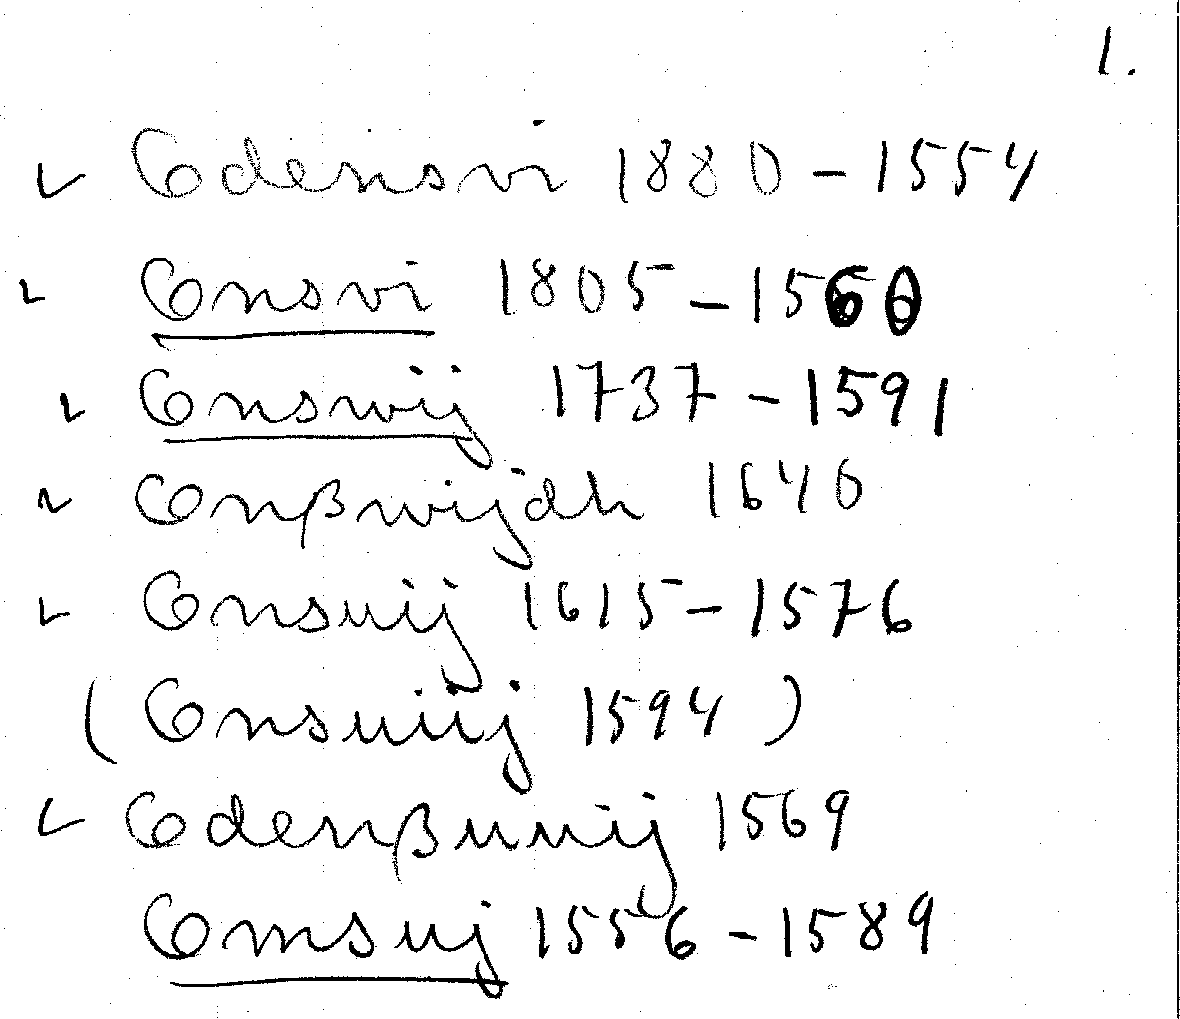 1.
Odensvi 1880-1554
Onsvi 1805-1560
Onswij 1737-1591
Onßwijdh 1640
Onsuij 1615-1576
(Onsuiij 1594)
Odenßuuij 1569
Omsuj 1556-1589